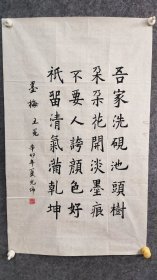 吾家洗硯池頭樹
朵朵花開淡墨痕
不要人誇顏色好
祇留清氣滿乾坤
墨梅 王冕 辛卯年